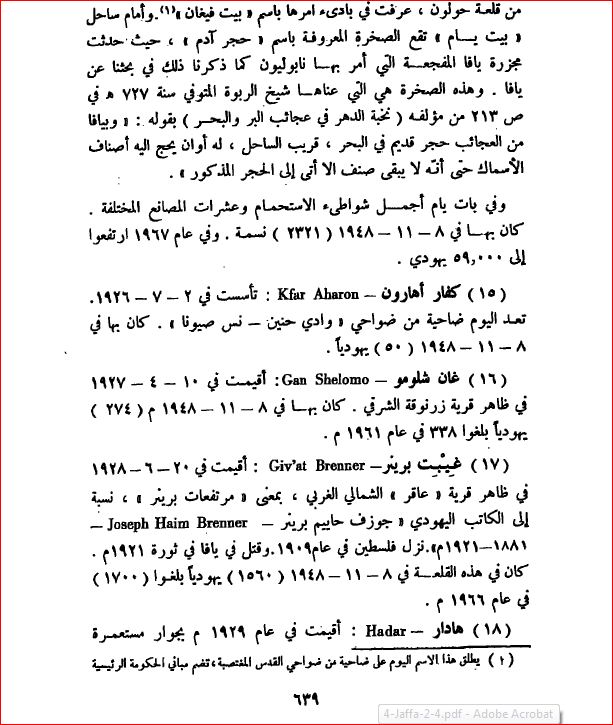 من قلعة حولون ، عرفت في بادىء امرها باسم « بيت فيغان »(١).وأمام ساحل
« بيت يـــام » تقع الصخرة المعروفة باسم « حجر آدم » ، حيث حدثت
مجزرة يافا المفجعــة التي أمر بهــا نابوليون كما ذكرنا ذلك في بحثنا عن
يافا . وهذه الصخرة هي التي عناهـا شيخ الربوة المتوفي سنة ٧٢٧ هـ في
ص ٢١٣ من مؤلفـه ( نخبة الدهر في عجائب البر والبحـر ) بقوله : « وبيافا
من العجائب حجر قديم في البحر ، قريب الساحل ، له أوان يحج اليه أصناف
الأسماك حتى أنّـه لا يبقى صنف الا أتى إلى الحجر المذكور » .
وفي بات يام أجمــل شواطىء الاستحمام وعشرات المصانع المختلفة .
كان بهـا في ٨ – ١١ – ١٩٤٨ ( ٢٣٢١ ) نسمة . وفي عام ١٩٦٧ ارتفعوا
إلى ٥٩,٠٠٠ يهودي .
(١٥) كفار أهارون – Kfar Aharon : تأسست في ٢ – ٧ – ١٩٢٦.
تعـد اليوم ضاحية من ضواحي « وادي حنين – نس صيونا » . كان بها في
٨ – ١١ – ١٩٤٨ (٥٠) يهودياً .
(١٦) غان شلومو – Gan Shelomo: أقيمت في ١٠ – ٤ – ١٩٢٧
في ظاهر قرية زرنوقة الشرقي . كان بهـا في ٨ – ١١ – ١٩٤٨ م ( ٢٧٤ )
يهودياً بلغوا ٣٣٨ في عام ١٩٦١ م .
(١٧) غيبْت برينر– Giv'at Brenner : أقيمت في ٢٠ – ٦ – ١٩٢٨
في ظاهر قرية « عاقر » الشمالي الغربي ، بمعنى « مرتفعات برينر » ، نسبة
إلى الكاتب اليهودي « جوزف حاييم برينر – Joseph Haim Brenner –
١٨٨١–١٩٢١م».نزل فلسطين في عام١٩٠٩.وقتل في يافا في ثورة ١٩٢١م .
كان في هذه القلعــة في ٨ – ١١ – ١٩٤٨ (١٥٦٠) يهودياً بلغوا (١٧٠٠)
في عام ١٩٦٦ م .
(١٨) هادار – Hadar : أقيمت في عام ١٩٢٩ م بجوار مستعمرة
(١) يطلق هذا الاسم اليوم على ضاحية من ضواحي القدس المغتصبة، تضم مباني الحكومة الرئيسية
٦٣٩
4-Jaffa-2-4.pdf - Adobe Acrobat